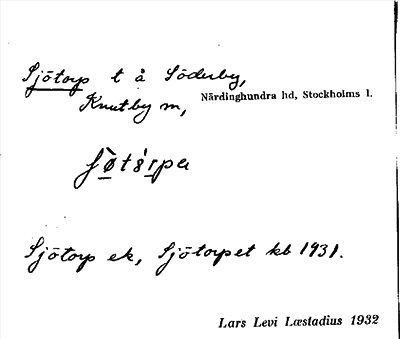 Sjötorp t å Söderby,
Knutby sn, Närdinghundra hd, Stockholms l.
Sjötorp ek, Sjötorpet kb 1931.
Lars Levi Læstadius 1932